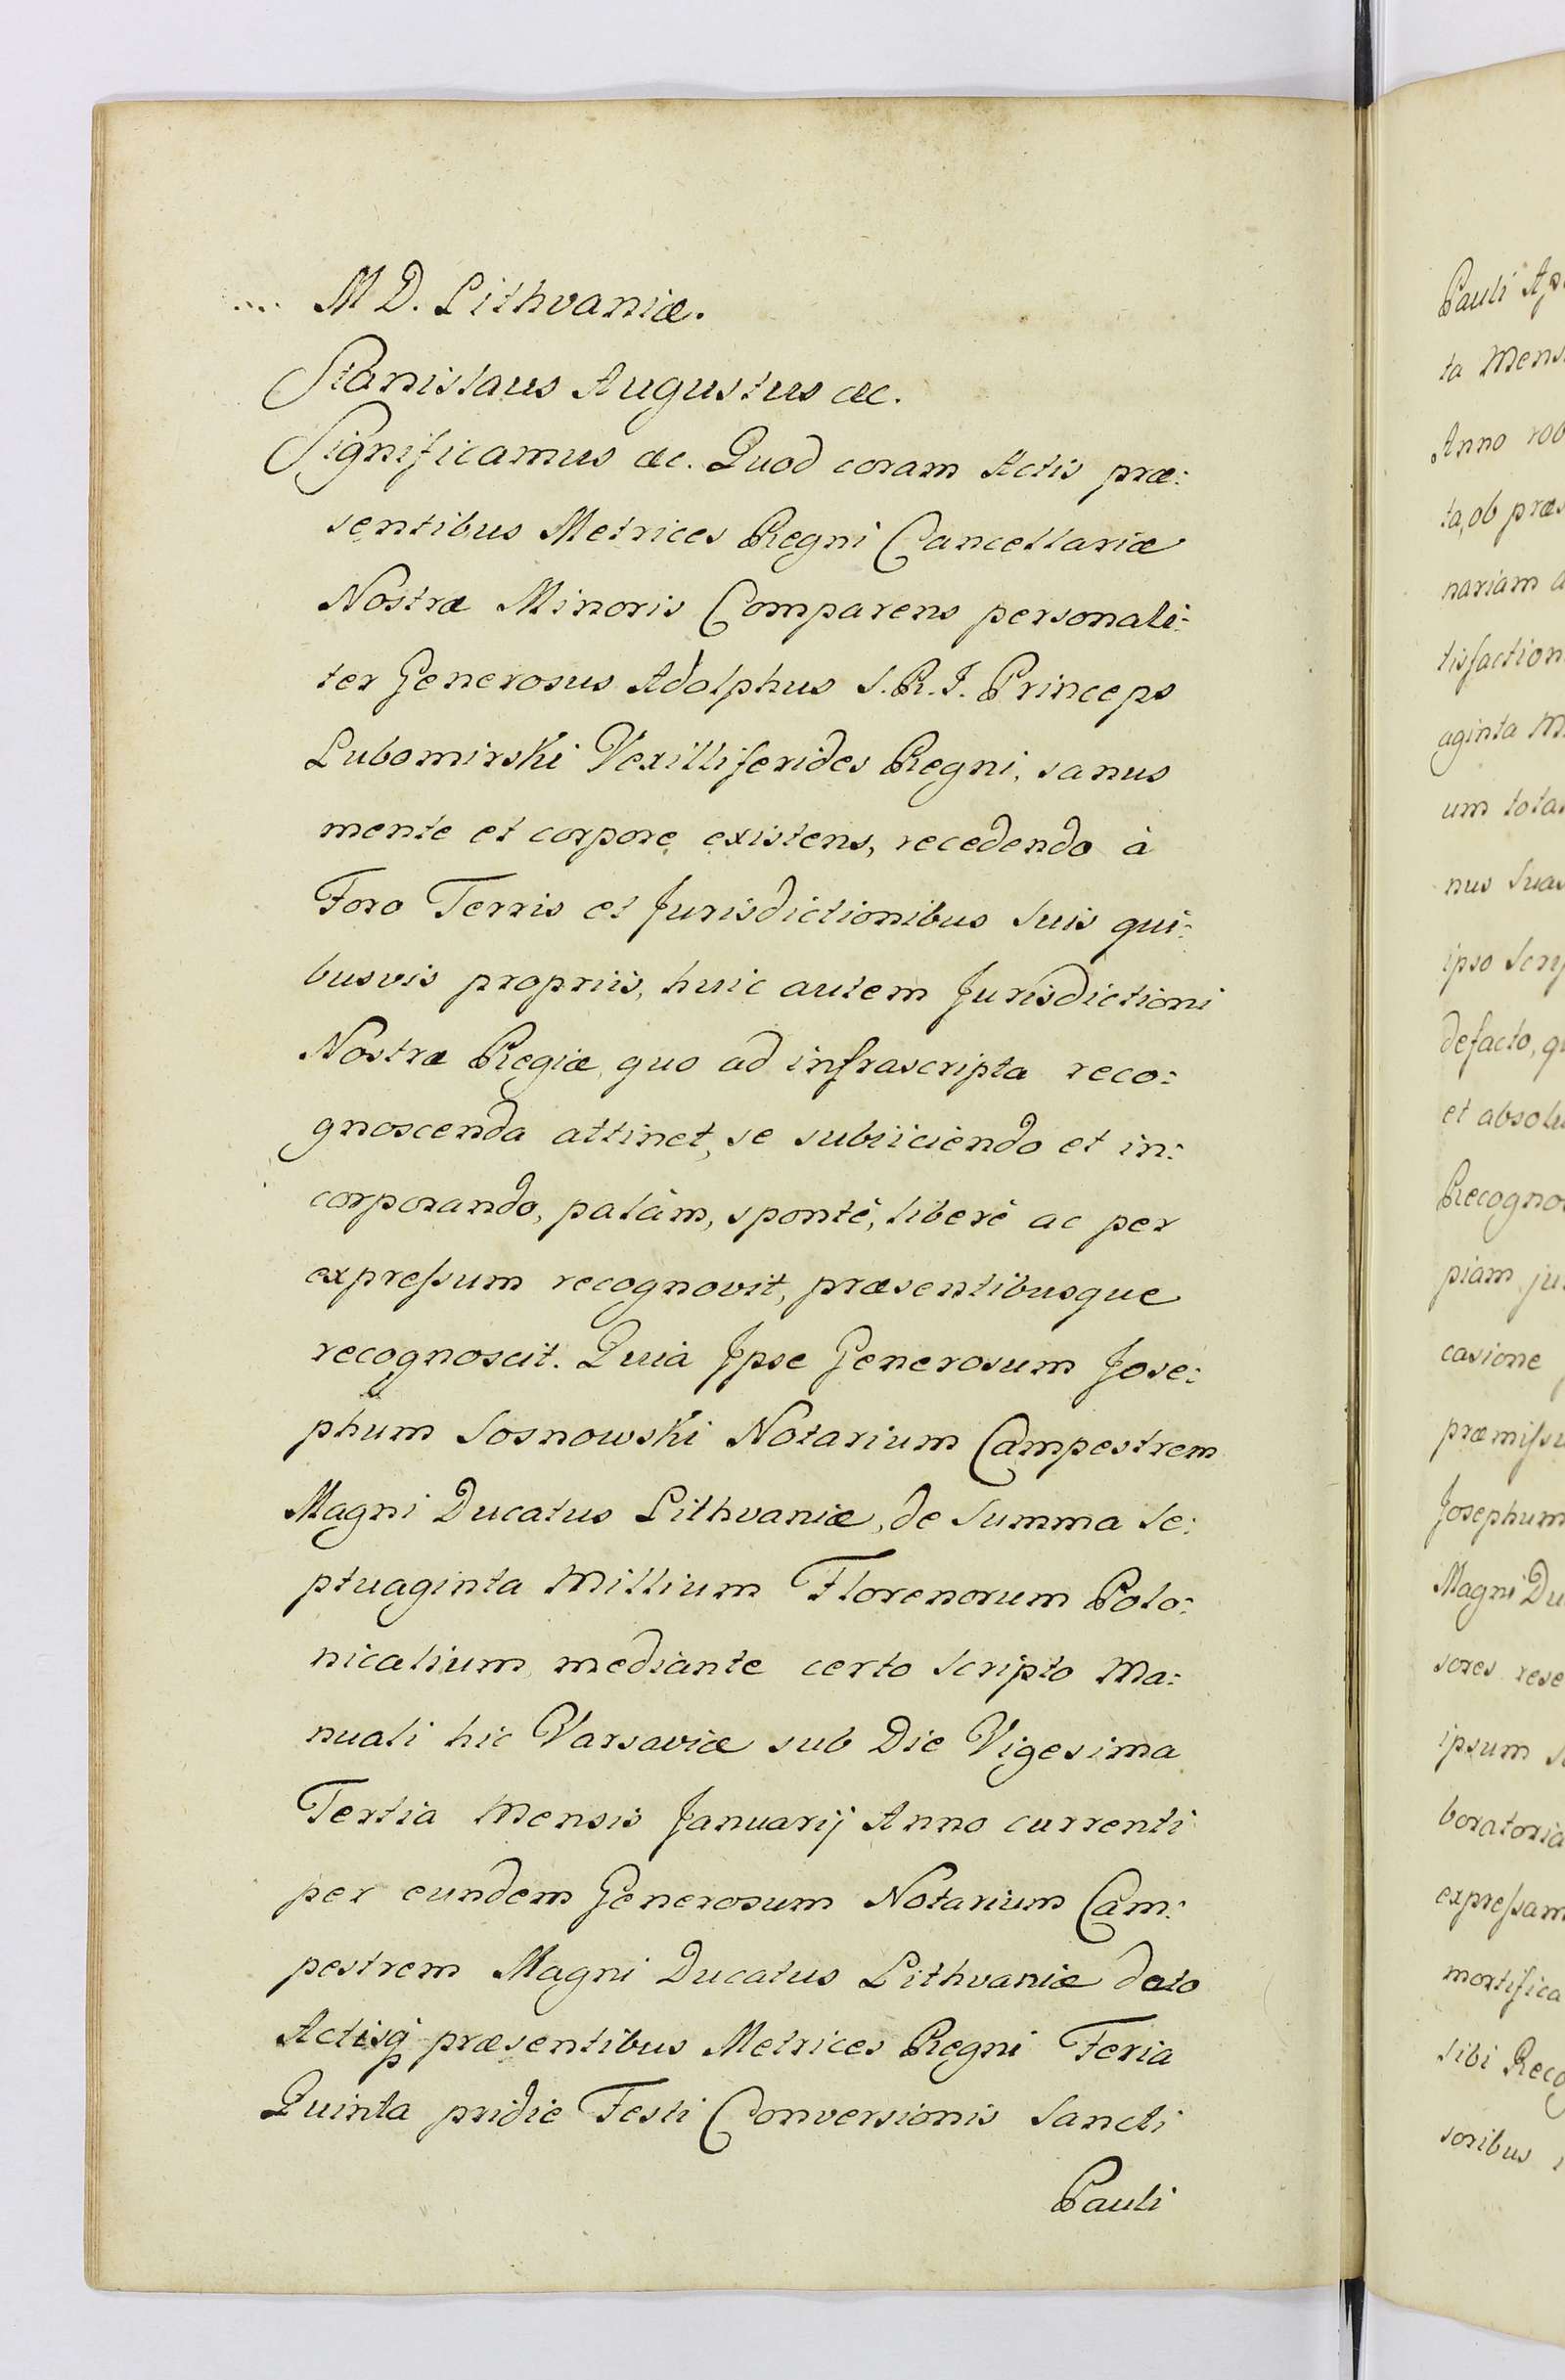 ... M D. Lithvaniæ.
Stanislaus Augustus &c.
Significamus &c. Quod coram Actis præ:
sentibus Metrices Regni Cancellariæ
Nostræ Minoris Comparens personali:
ter Generosus Adolphus S.R.I. Princeps
Lubomirski Vexilliferides Regni, sanus
mente et corpore existens, recedendo à
Foro Terris et Jurisdictionibus suis qui:
busvis propriis, huic autem Jurisdictioni
Nostræ Regiæ, quo ad infrascripta reco:
gnoscenda attinet, se subiiciendo et in:
corporando, palàm, spontè, liberè ac per
expressum recognovit, præsentibusque
recognoscit. Quià Ipse Generosum Jose:
phum Sosnowski Notarium Campestrem
Magni Ducatus Lithvaniæ, de Summa Se:
ptuaginta Millium Florenorum Polo:
nicalium, mediante certo Scripto Ma:
nuali hic Varsaviæ sub Die Vigesima
Tertia Mensis Januarij Anno currenti
per eundem Generosum Notarium Cam:
pestrem Magni Ducatus Lithvaniæ dato
Actisq præsentibus Metrices Regni Feria
Quinta pridie Festi Conversionis Sancti
Pauli
Pauli
ta Mens
Anno
ta, ob præs
nariam
tisfaction
aginta
um
nus
ipso
defacto,
et
Recogno
piam
casione
præmissu
Josephum
Magni Du
sores
ipsum
boratoria
expressam
mortifica
sibi Reco
soribus